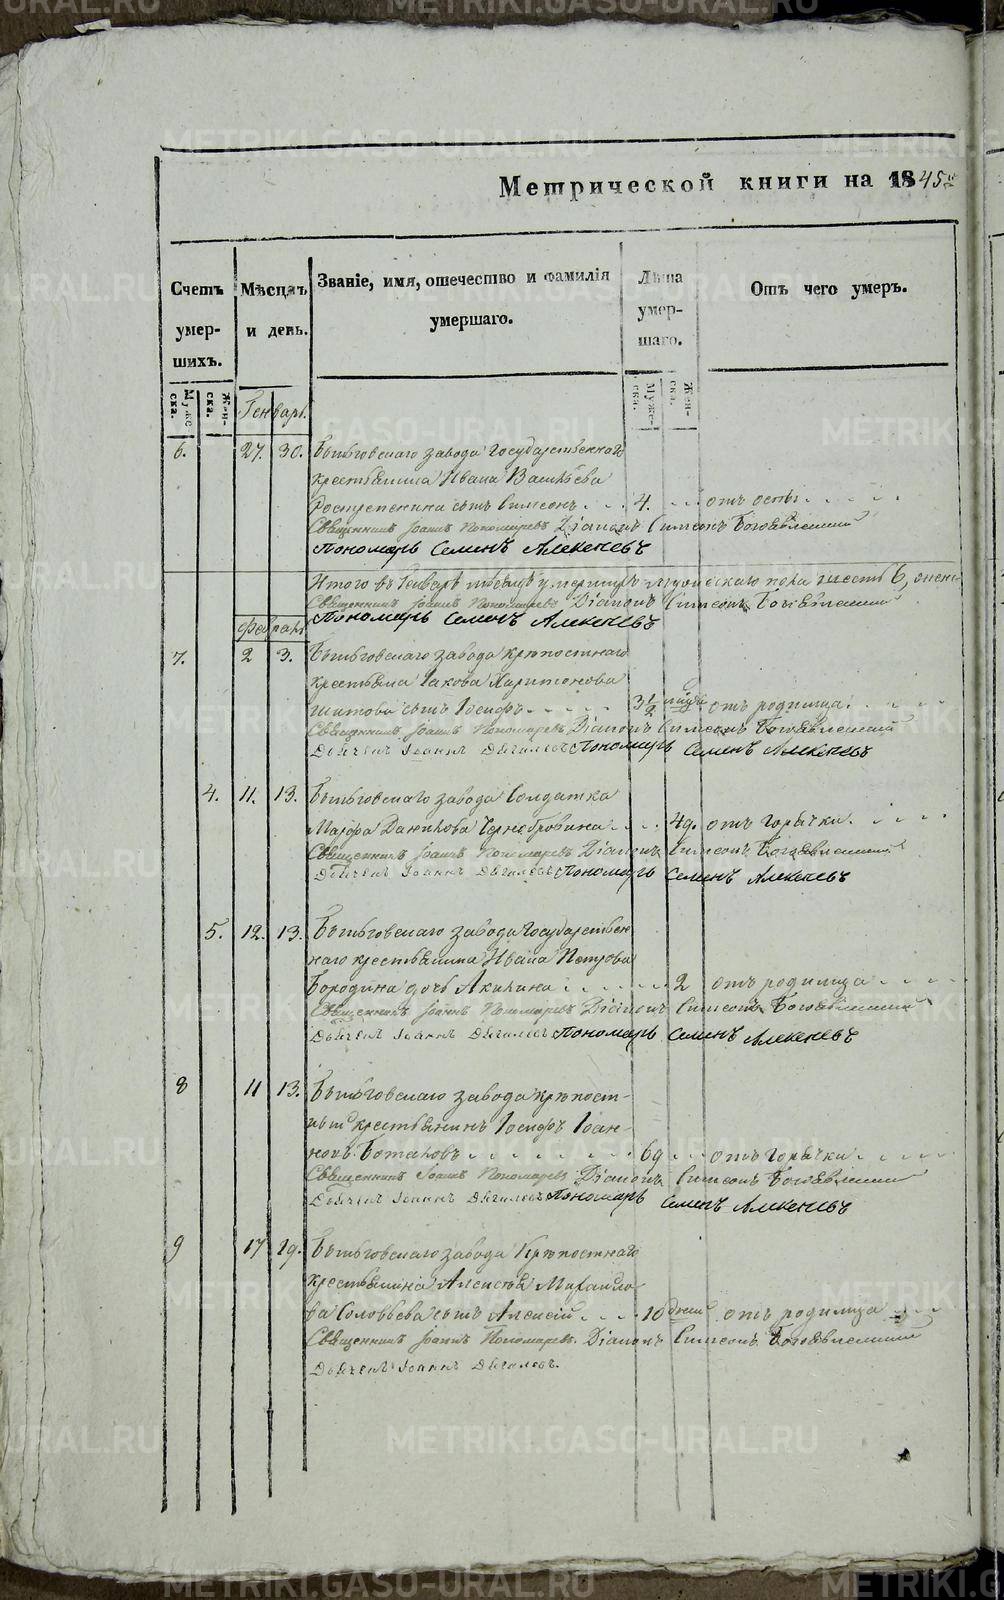 Метрической книги на 1845й
Счетъ умер-шихъ.
Мѣсяцъ и день.
Званіе, имя, отечество и фамилія умершаго.
Лѣта умер-шаго.
Отъ чего умеръ.
Муже ска. Жен-ска.
Муже-ска. Жен-ска.
Генварь.
6. 27. 30. завода Государственнаго
крестьянина Ивана Васильева
сынъ Симеонъ 4. отъ оспы
Священникъ Іоаннъ Пономаревъ Діаконъ Симеонъ Богоявленскій
Пономарь Семенъ Алексеевъ
Итого въ Генварѣ мѣсяцѣ умершихъ мужескаго пола шесть 6,
Священникъ Іоаннъ Пономаревъ Діаконъ Симеонъ Богоявленскій
Пономарь Семенъ Алексеевъ
Февраль
7. 2 3. завода крѣпостнаго
крестьянина Іакова Харитонова
сынъ Іосифъ 3½ отъ родимца.
Священникъ Іоаннъ Пономаревъ Діаконъ Симеонъ Богоявленскій
Дьячекъ Іоаннъ Дягилевъ Пономарь Семенъ Алексеевъ
4. 11. 13. завода Солдатка
Данилова Чернобровина 49. отъ горячки.
Священникъ Іоаннъ Пономаревъ Діаконъ Симеонъ Богоявленскій
Дьячекъ Іоаннъ Дягилевъ Пономарь Семенъ Алексеевъ
5. 12. 13. завода Государствен
наго крестьянина Ивана Петрова
Бородина дочь Акилина 2 отъ родимца
Священникъ Іоаннъ Пономаревъ Діаконъ Симеонъ Богоявленскій
Дьячекъ Іоаннъ Дягилевъ Пономарь Семенъ Алексеевъ
8 11 13. завода крѣпост-
ный крестьянинъ Іосифъ Іоан-
новъ Боталовъ 69 отъ горячки.
Священникъ Іоаннъ Пономаревъ Діаконъ Симеонъ Богоявленскій
Дьячекъ Іоаннъ Дягилевъ Пономарь Семенъ Алексеевъ
9 17 19. завода Крѣпостнаго
крестьянина Алексѣя Михайло-
ва Соловьева сынъ Алексій 10 дней отъ родимца
Священникъ Іоаннъ Пономаревъ. Діаконъ Симеонъ Богоявленскій
Дьячекъ Іоаннъ Дягилевъ.
METRIKI.GASO-URAL.RU